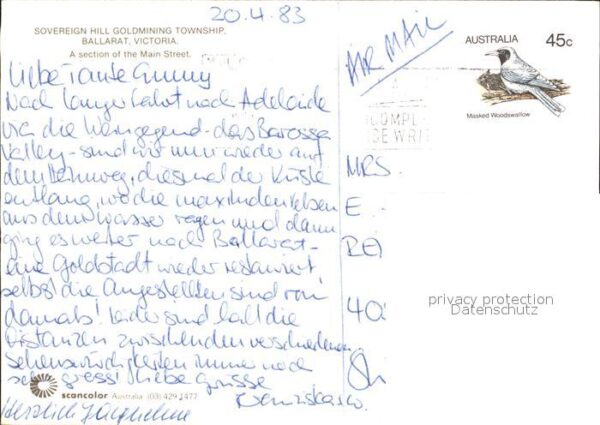 20.4.83
SOVEREIGN HILL GOLDMINING TOWNSHIP,
BALLARAT, VICTORIA.
A section of the Main Street.
Liebe Tante Emmy
Nach langer Fahrt nach Adelaide
via die Weingegend - das Barossa
Valley - sind wir nun wieder auf
dem Heimweg, diesmal der Küste
entlang, wo die
aus dem Wasser ragen und dann
ging es weiter nach Ballarat -
eine Goldstadt wieder restauriert,
selbst die Angestellten sind von
damals! Leider sind halt die
Distanzen zwischen den verschiedenen
Sehenswürdigkeiten immer noch
sehr gross! Liebe Grüsse
scancolor Australia (03) 429 1477
Herzlich Jacqueline
AIR MAIL
AUSTRALIA 45c
Masked Woodswallow
MRS.
E
RE
40
privacy protection
Datenschutz